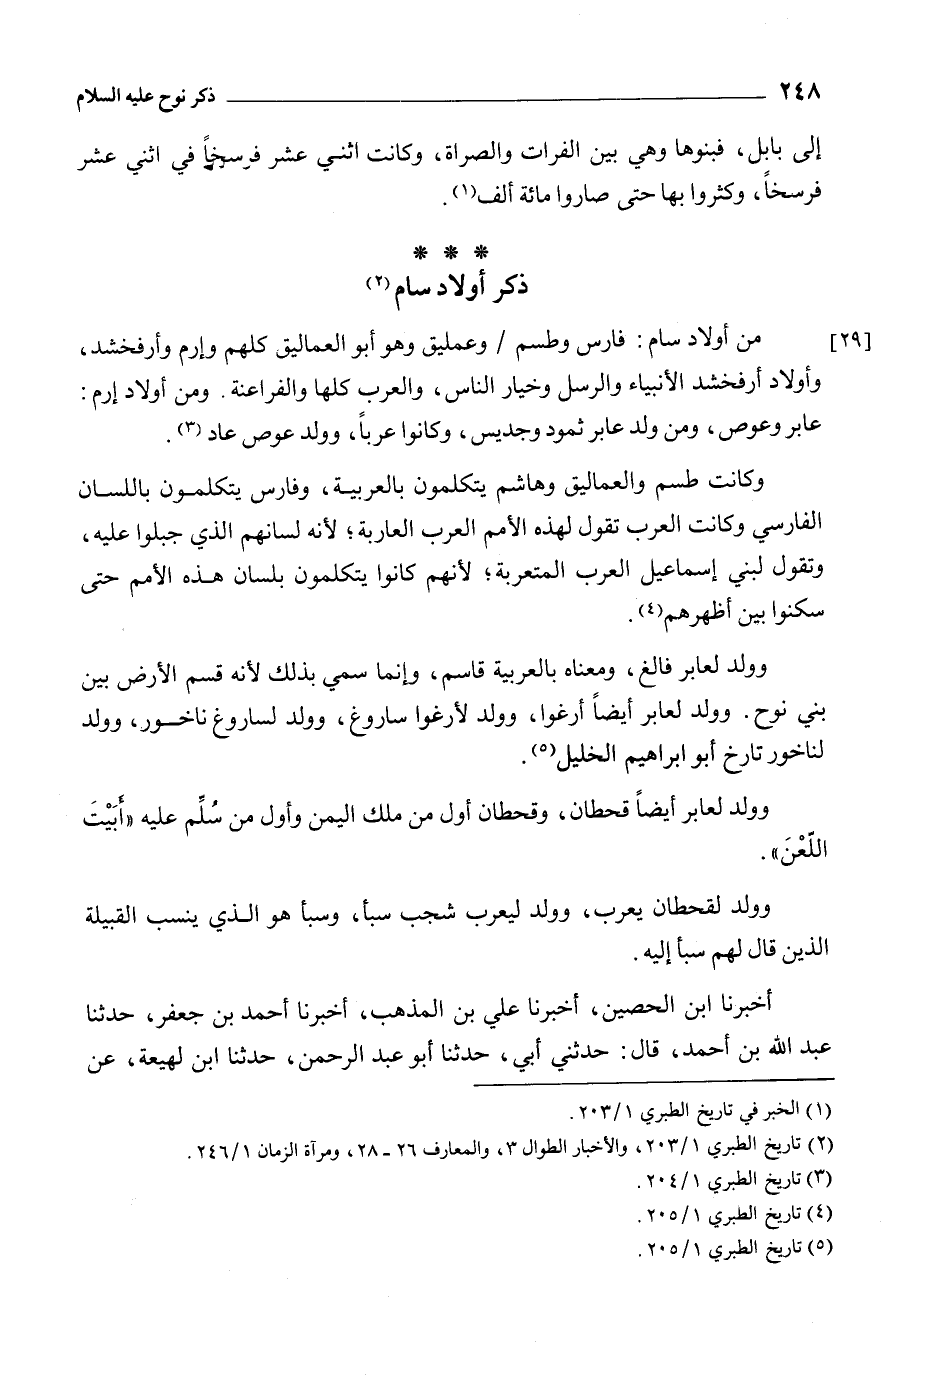 ٢٤٨ ذكر نوح عليه السلام
إلى بابل، فبنوها وهي بين الفرات والصراة، وكانت اثنـي عشر فرسخاً في اثني عشر
فرسخاً، وكثروا بها حتى صاروا مائة ألف(١).
* * *
ذكر أولاد سام(٢)
[٢٩] من أولاد سام: فارس وطسم / وعمليق وهو أبو العماليق كلهم وإرم وأرفخشد،
وأولاد أرفخشد الأنبياء والرسل وخيار الناس، والعرب كلها والفراعنة. ومن أولاد إرم:
عابر وعوص، ومن ولد عابر ثمود وجديس، وكانوا عرباً، وولد عوص عاد (٣).
وكانت طسم والعماليق وهاشم يتكلمون بالعربيـة، وفارس يتكلمـون باللسـان
الفارسي وكانت العرب تقول لهذه الأمم العرب العاربة؛ لأنه لسانهم الذي جبلوا عليه،
وتقول لبني إسماعيل العرب المتعربة؛ لأنهم كانوا يتكلمون بلسان هـذه الأمم حتى
سكنوا بين أظهرهم(٤).
وولد لعابر فالغ، ومعناه بالعربية قاسم، وإنما سمي بذلك لأنه قسم الأرض بين
بني نوح. وولد لعابر أيضاً أرغوا، وولد لأرغوا ساروغ، وولد لساروغ ناخـور، وولد
لناخور تارخ أبو ابراهيم الخليل(٥).
وولد لعابر أيضاً قحطان، وقحطان أول من ملك اليمن وأول من سُلِّم عليه «أَبَيْتَ
اللّعْنَ».
وولد لقحطان يعرب، وولد ليعرب شجب سبأ، وسبأ هو الـذي ينسب القبيلة
الذين قال لهم سبأ إليه.
أخبرنا ابن الحصين، أخبرنا علي بن المذهب، أخبرنا أحمد بن جعفر، حدثنا
عبد الله بن أحمد، قال: حدثني أبي، حدثنا أبو عبد الرحمن، حدثنا ابن لهيعة، عن
(١) الخبر في تاريخ الطبري ٢٠٣/١.
(٢) تاريخ الطبري ٢٠٣/١، والأخبار الطوال ٣، والمعارف ٢٦ ـ ٢٨، ومرآة الزمان ٢٤٦/١.
(٣) تاريخ الطبري ٢٠٤/١.
(٤) تاريخ الطبري ٢٠٥/١.
(٥) تاريخ الطبري ٢٠٥/١.